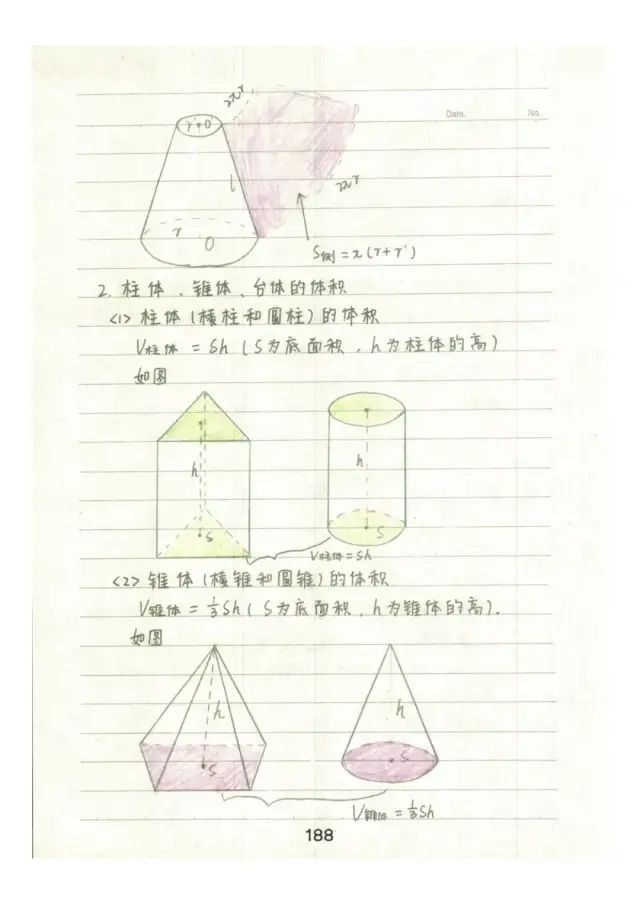 Date. No.
2πr'
r' O'
l
2πr
r O
S侧 = π(r+r')
2. 柱体、锥体、台体的体积
<1> 柱体(棱柱和圆柱)的体积
V柱体 = Sh (S为底面积,h为柱体的高)
如图
h h
S S
V柱体=Sh
<2> 锥体(棱锥和圆锥)的体积
V锥体 = 1/3 Sh (S为底面积,h为锥体的高).
如图
h h
S S
V锥体 = 1/3 Sh
188